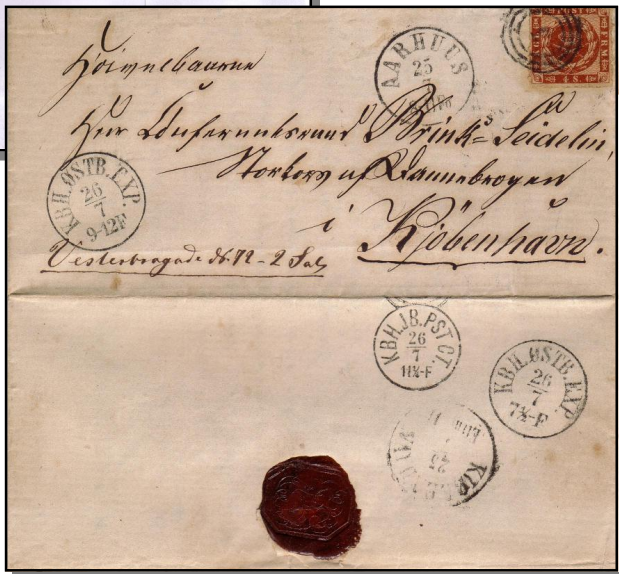 Høivelbaarne
AARHUUS
25
7
Herr Conferentsraad Brinck-Seidelin,
Storkors af Dannebrogen
i Kjöbenhavn.
KBH. ØSTB. EXP.
26
7
9-12F
Vesterbrogade N. 72 - 2 Sal
KBH.JB.PST CT.
26
7
11½-F
KBH. ØSTB. EXP.
26
7
7½-F
25